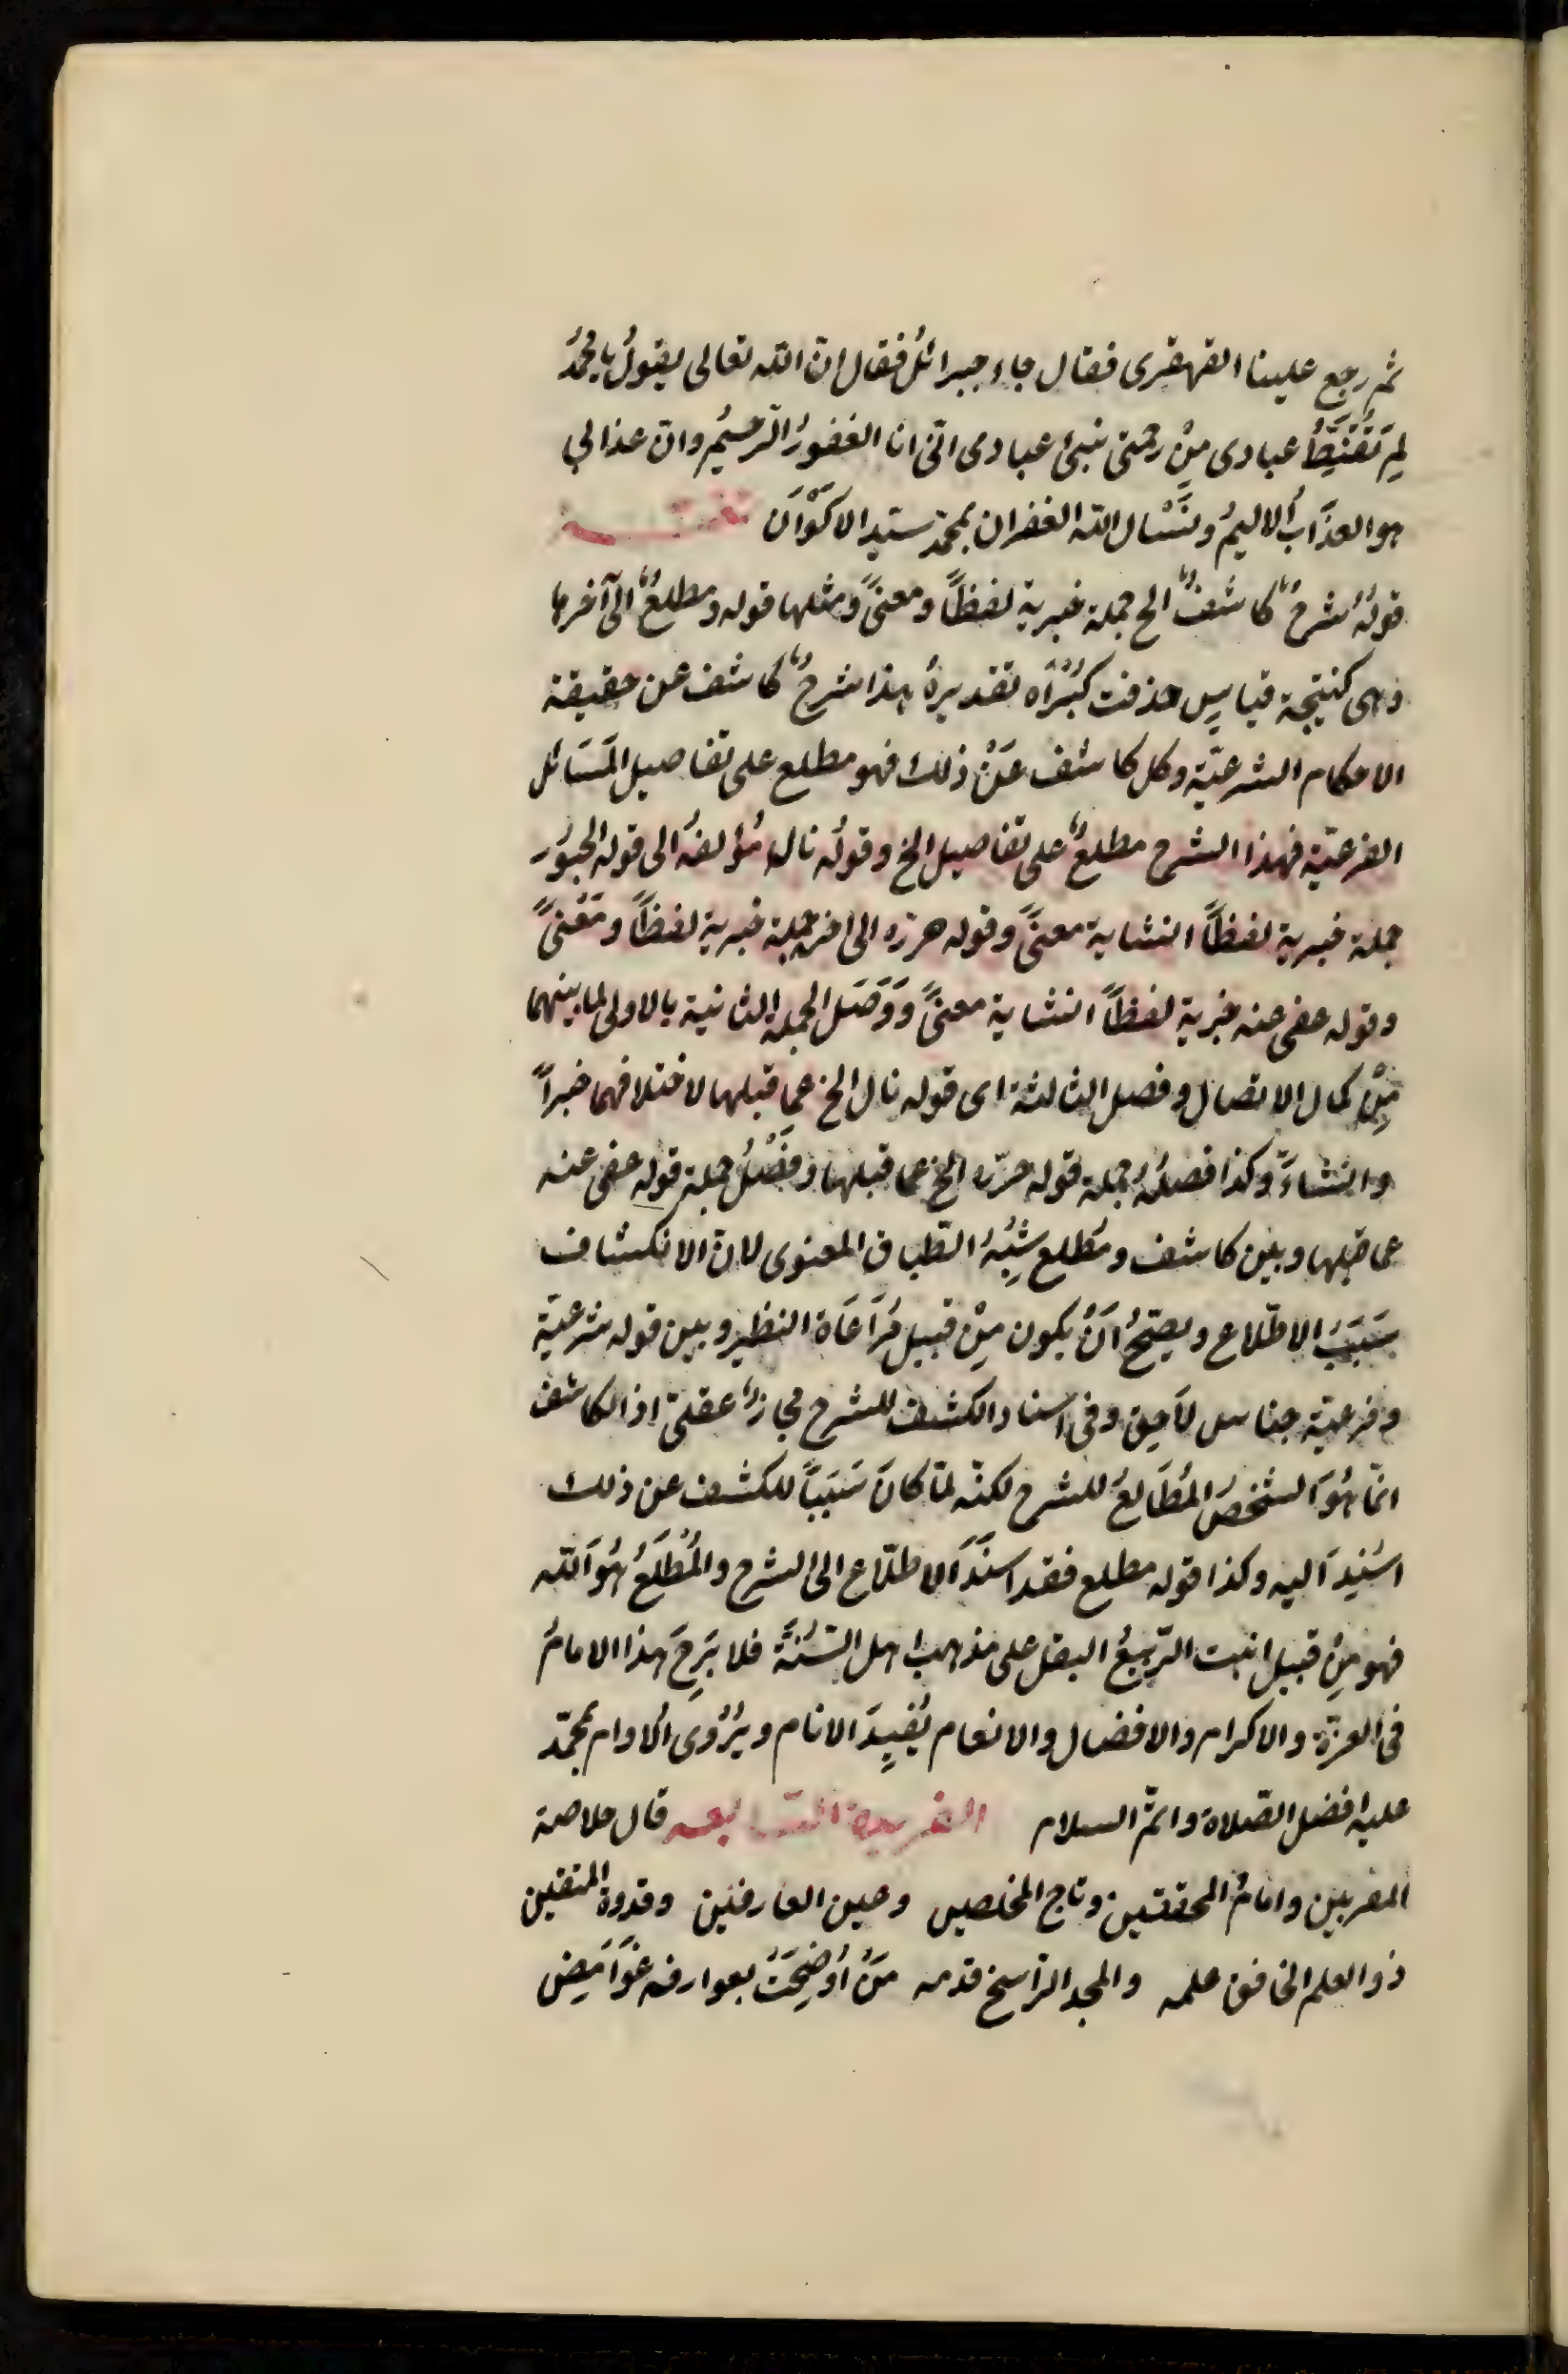 ثم رجع علينا القهقرى فقال جاء جبرائلُ فقال انّ الله تعالى يقولُ يا محمّدُ
لِمَ تُقَنِّطُ عبادى مِنْ رحمتى نبئ عبادى انّى انا الغفورُ الرّحيمُ وانّ عذابي
هو العذَابُ الاليمُ ونَسْال الله الغفران بمحمّد سيّد الاكْوَان
قولُهُ شرحٌ كاشفٌ الخ جملة خبرية لفظاً ومعنىً ومثلها قوله ومطلعٌ الى آخرها
وهى كنتيجة قياسٍ حذفت كُبْرَاه تقديرهُ هذا شرحٌ كاشف عن حقيقة
الاحكام الشرعيّة وكل كاشف عَنْ ذلك فهو مطلع على تفاصيل المَسَائل
الفرعيّة فهذا الشرح مطلعٌ على تفاصيل الخ وقولُه نال مُؤلفهُ الى قوله الحبُور
جملة خبرية لفظاً انشاية معنىً وقوله حرره الى اخره جملة خبرية لفظاً ومَعْنىً
وقوله عفى عنه خبرية لفظاً انشاية معنىً وَوَصَل الجملة الثانية بالاولى لما بينهما
مِنْ كمال الاتصال وفصل الثالثة اى قوله نال الخ عما قبلها لاختلافهما خبراً
وانشاءً وكذا فصلُهُ جملة قوله حرّره الخ عما قبلها وفَصْلُ جملة قوله عفى عنه
عما قبلها وبين كاشف ومُطلع شِبْهُ الطّباق المعنوى لانّ الانكشاف
سَبَبُ الاطّلاع ويصحُّ اَنْ يكون مِنْ قبيل مُرَاعَاة النظير وبين قوله شرعيّة
وفرعيّة جناس لاَحِق وفى اسناد الكشف للشرح مجازٌ عقلىّ اذ الكاشف
انّما هُوَ الشخصُ المُطَالعُ للشرح لكنّه لمّا كانَ سَبَباً للكشف عن ذلك
اسْنِدَ اليه وكذا قوله مطلع فقد اسنَدَ الاطلّاع الى الشرح والمُطْلَعُ هُوَ الله
فهو مِنْ قبيل انبت الرّبيعُ البقل على مذهب اهل السّنَة فلا بَرِحَ هذا الامامُ
فى العزّة والاكرام والافضال والانعام يُفيِدَ الانام ويُرْوى الاوام بمحمّد
عليه افضل الصّلاة واتمّ السلام الفريدة السّابعه قال خلاصة
المقربين وامامُ المحققين وتاج المخلصين وعين العارفين وقدوة المتقين
ذو العلم الخافق علمه والمجد الرّاسخ قدمه مَنْ اُوضِحَتْ بعوارفه غَوَامِض